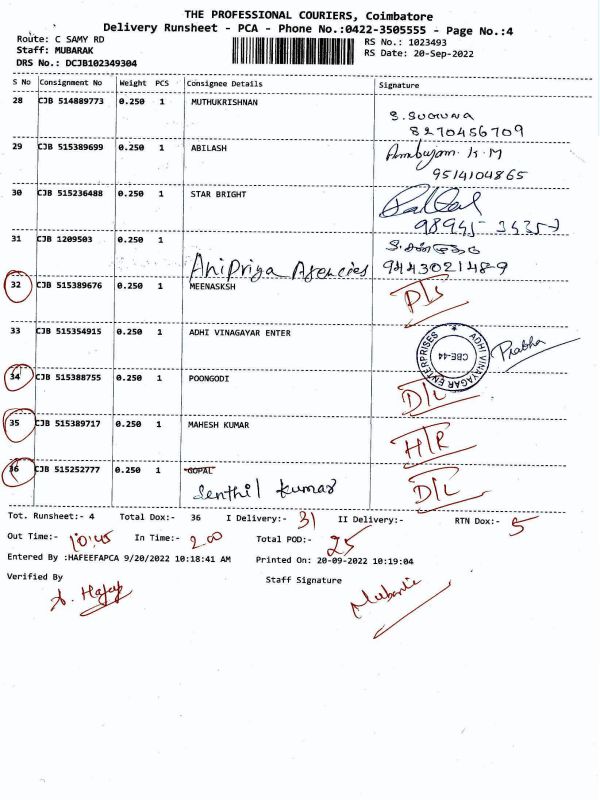 THE PROFESSIONAL COURIERS, Coimbatore
Delivery Runsheet - PCA - Phone No.:0422-3505555 - Page No.:4
Route: C SAMY RD
RS No.: 1023493
Staff: MUBARAK
RS Date: 20-Sep-2022
DRS No.: DCJB102349304
S No Consignment No Weight PCS Consignee Details Signature
28 CJB 514889773 0.250 1 MUTHUKRISHNAN
S. Suguna
8270456709
29 CJB 515389699 0.250 1 ABILASH Ambujam. K. M
9514104865
30 CJB 515236488 0.250 1 STAR BRIGHT
31 CJB 1209503 0.250 1
AniPriya Agencies 9443021489
32 CJB 515389676 0.250 1 MEENASKSH D/S
33 CJB 515354915 0.250 1 ADHI VINAYAGAR ENTER
ADHI VINAYAGAR ENTERPRISES CBE-44 Prabha
34 CJB 515388755 0.250 1 POONGODI D/L
35 CJB 515389717 0.250 1 MAHESH KUMAR H/R
36 CJB 515252777 0.250 1 GOPAL
Senthil Kumar D/L
Tot. Runsheet:- 4 Total Dox:- 36 I Delivery:- 31 II Delivery:- RTN Dox:- 5
Out Time:- 10:45 In Time:- 2.00 Total POD:- 25
Entered By :HAFEEFAPCA 9/20/2022 10:18:41 AM Printed On: 20-09-2022 10:19:04
Verified By Staff Signature